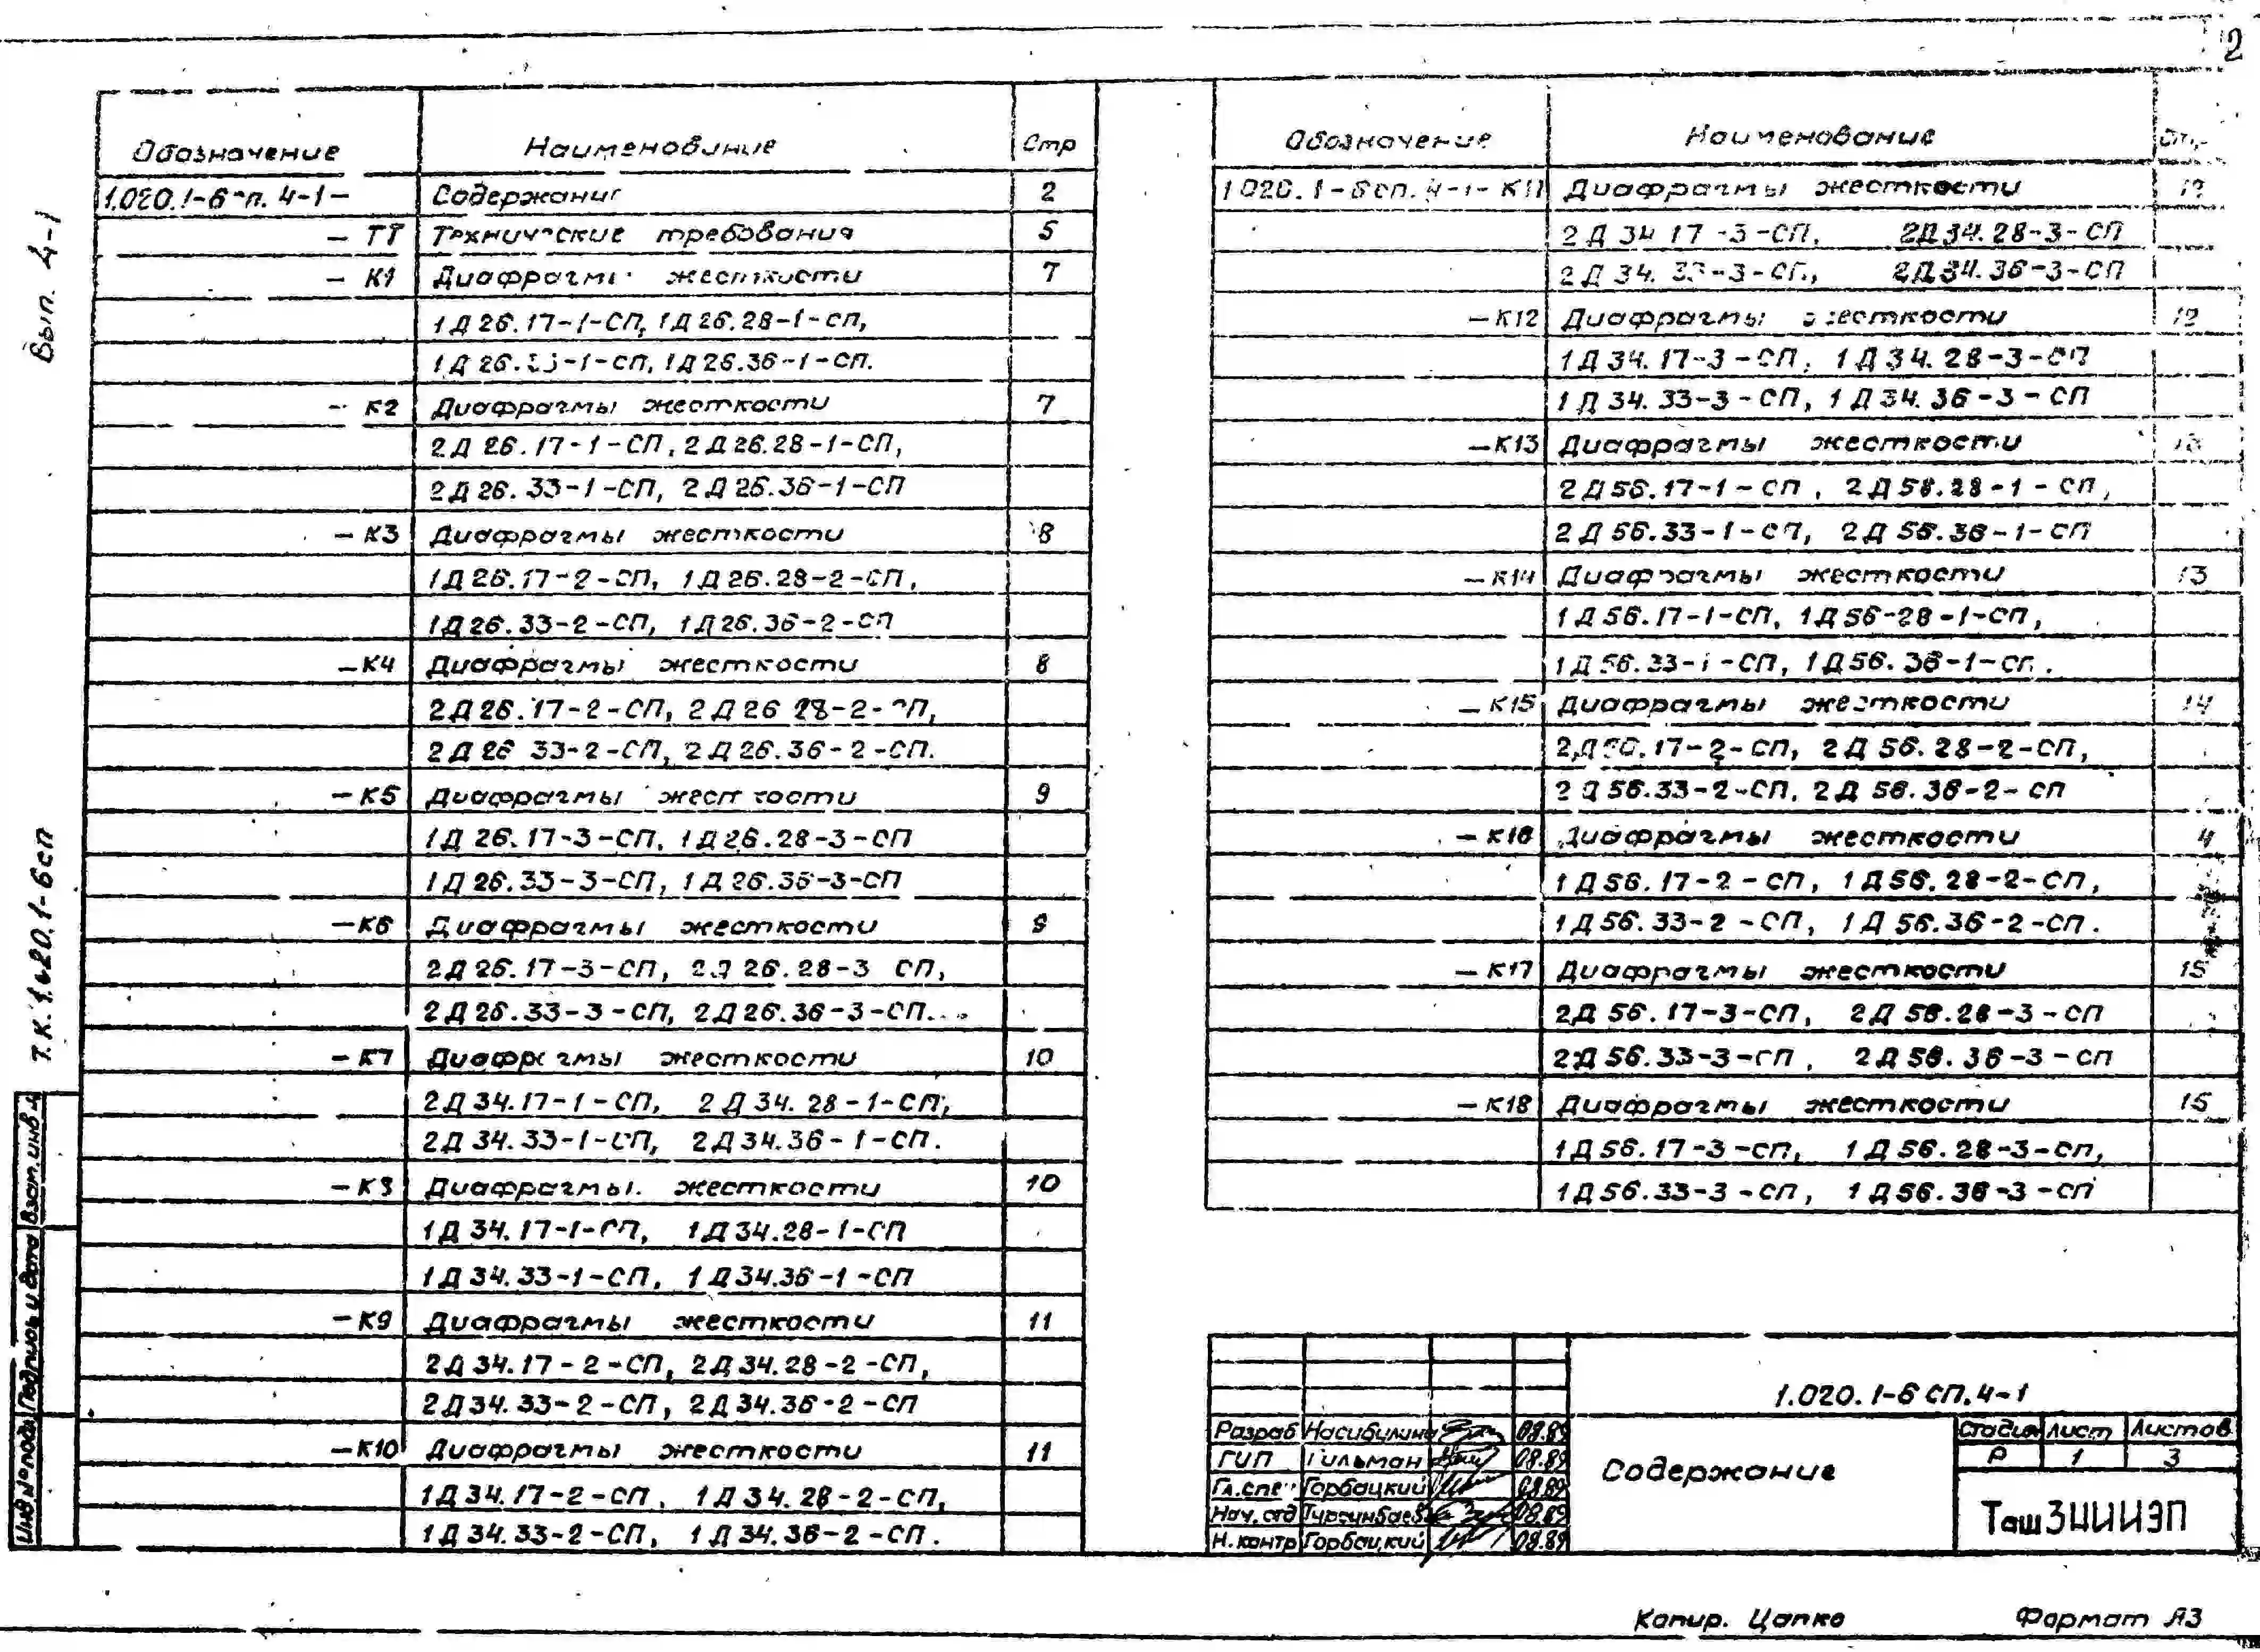 2
Обозначение Наименование Стр
1.020.1-6сп. 4-1- Содержание 2
- ТТ Технические требования 5
- К1 Диафрагмы жесткости 7
1Д26.17-1-СП, 1Д26.28-1-СП,
1Д26.33-1-СП, 1Д26.36-1-СП.
- К2 Диафрагмы жесткости 7
2Д26.17-1-СП, 2Д26.28-1-СП,
2Д26.33-1-СП, 2Д26.36-1-СП
- К3 Диафрагмы жесткости 8
1Д26.17-2-СП, 1Д26.28-2-СП,
1Д26.33-2-СП, 1Д26.36-2-СП
- К4 Диафрагмы жесткости 8
2Д26.17-2-СП, 2Д26 28-2-СП,
2Д26 33-2-СП, 2Д26.36-2-СП.
- К5 Диафрагмы жесткости 9
1Д26.17-3-СП, 1Д26.28-3-СП
1Д26.33-3-СП, 1Д26.36-3-СП
- К6 Диафрагмы жесткости 9
2Д26.17-3-СП, 2Д26.28-3 СП,
2Д26.33-3-СП, 2Д26.36-3-СП.
- К7 Диафрагмы жесткости 10
2Д34.17-1-СП, 2Д34.28-1-СП,
2Д34.33-1-СП, 2Д34.36-1-СП.
- К8 Диафрагмы жесткости 10
1Д34.17-1-СП, 1Д34.28-1-СП
1Д34.33-1-СП, 1Д34.36-1-СП
- К9 Диафрагмы жесткости 11
2Д34.17-2-СП, 2Д34.28-2-СП,
2Д34.33-2-СП, 2Д34.36-2-СП
- К10 Диафрагмы жесткости 11
1Д34.17-2-СП, 1Д34.28-2-СП,
1Д34.33-2-СП, 1Д34.36-2-СП.
Обозначение Наименование Стр.
1.020.1-6сп.4-1-К11 Диафрагмы жесткости 12
2Д34 17-3-СП, 2Д34.28-3-СП
2Д34.33-3-СП, 2Д34.36-3-СП
- К12 Диафрагмы жесткости 12
1Д34.17-3-СП, 1Д34.28-3-СП
1Д34.33-3-СП, 1Д34.36-3-СП
- К13 Диафрагмы жесткости 13
2Д56.17-1-СП, 2Д56.28-1-СП,
2Д56.33-1-СП, 2Д56.36-1-СП
- К14 Диафрагмы жесткости 13
1Д56.17-1-СП, 1Д56-28-1-СП,
1Д56.33-1-СП, 1Д56.36-1-СП.
- К15 Диафрагмы жесткости 14
2Д56.17-2-СП, 2Д56.28-2-СП,
2Д56.33-2-СП, 2Д56.36-2-СП
- К16 Диафрагмы жесткости 4
1Д56.17-2-СП, 1Д56.28-2-СП,
1Д56.33-2-СП, 1Д56.36-2-СП.
- К17 Диафрагмы жесткости 15
2Д56.17-3-СП, 2Д56.28-3-СП
2Д56.33-3-СП, 2Д56.36-3-СП
- К18 Диафрагмы жесткости 15
1Д56.17-3-СП, 1Д56.28-3-СП,
1Д56.33-3-СП, 1Д56.36-3-СП
Вып. 4-1
Т.К. 1.020.1-6сп
Взам.инв
Подпись и дата
Инв № подл
1.020.1-6 СП.4-1
Разраб Насибулина 08.89
ГИП Гильман 08.89
Гл.спец Горбацкий 08.89
Нач.отд Турсунбаев 08.89
Н.контр Горбацкий 08.89
Содержание
Стадия Лист Листов
Р 1 3
ТашЗНИИЭП
Копир. Цапко Формат А3